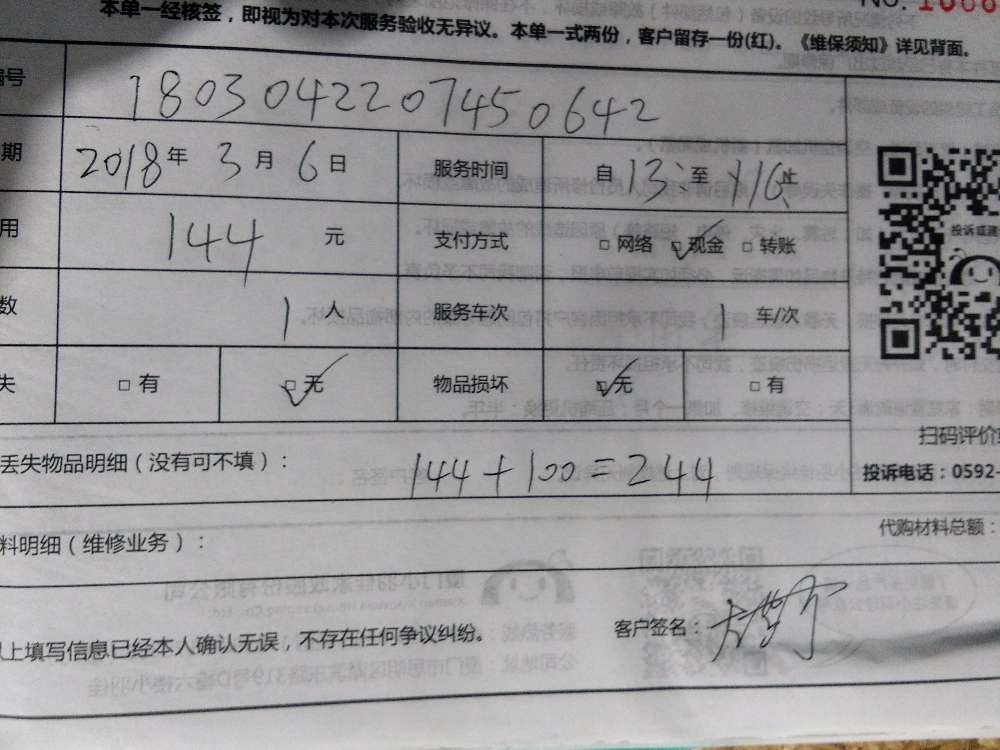 NO. 1066
本单一经核签，即视为对本次服务验收无异议。本单一式两份，客户留存一份(红)。《维保须知》详见背面。
编号 1803042207450642
期 2018年 3月 6日 服务时间 自 13 至 16 止
用 144 元 支付方式 □ 网络 ☑ 现金 □ 转账
数 1 人 服务车次 1 车/次
失 □ 有 ☑ 无 物品损坏 ☑ 无 □ 有
投诉或建
扫码评价
丢失物品明细（没有可不填）： 144+100=244
投诉电话：0592-
代购材料总额：
料明细（维修业务）：
上填写信息已经本人确认无误，不存在任何争议纠纷。 客户签名：